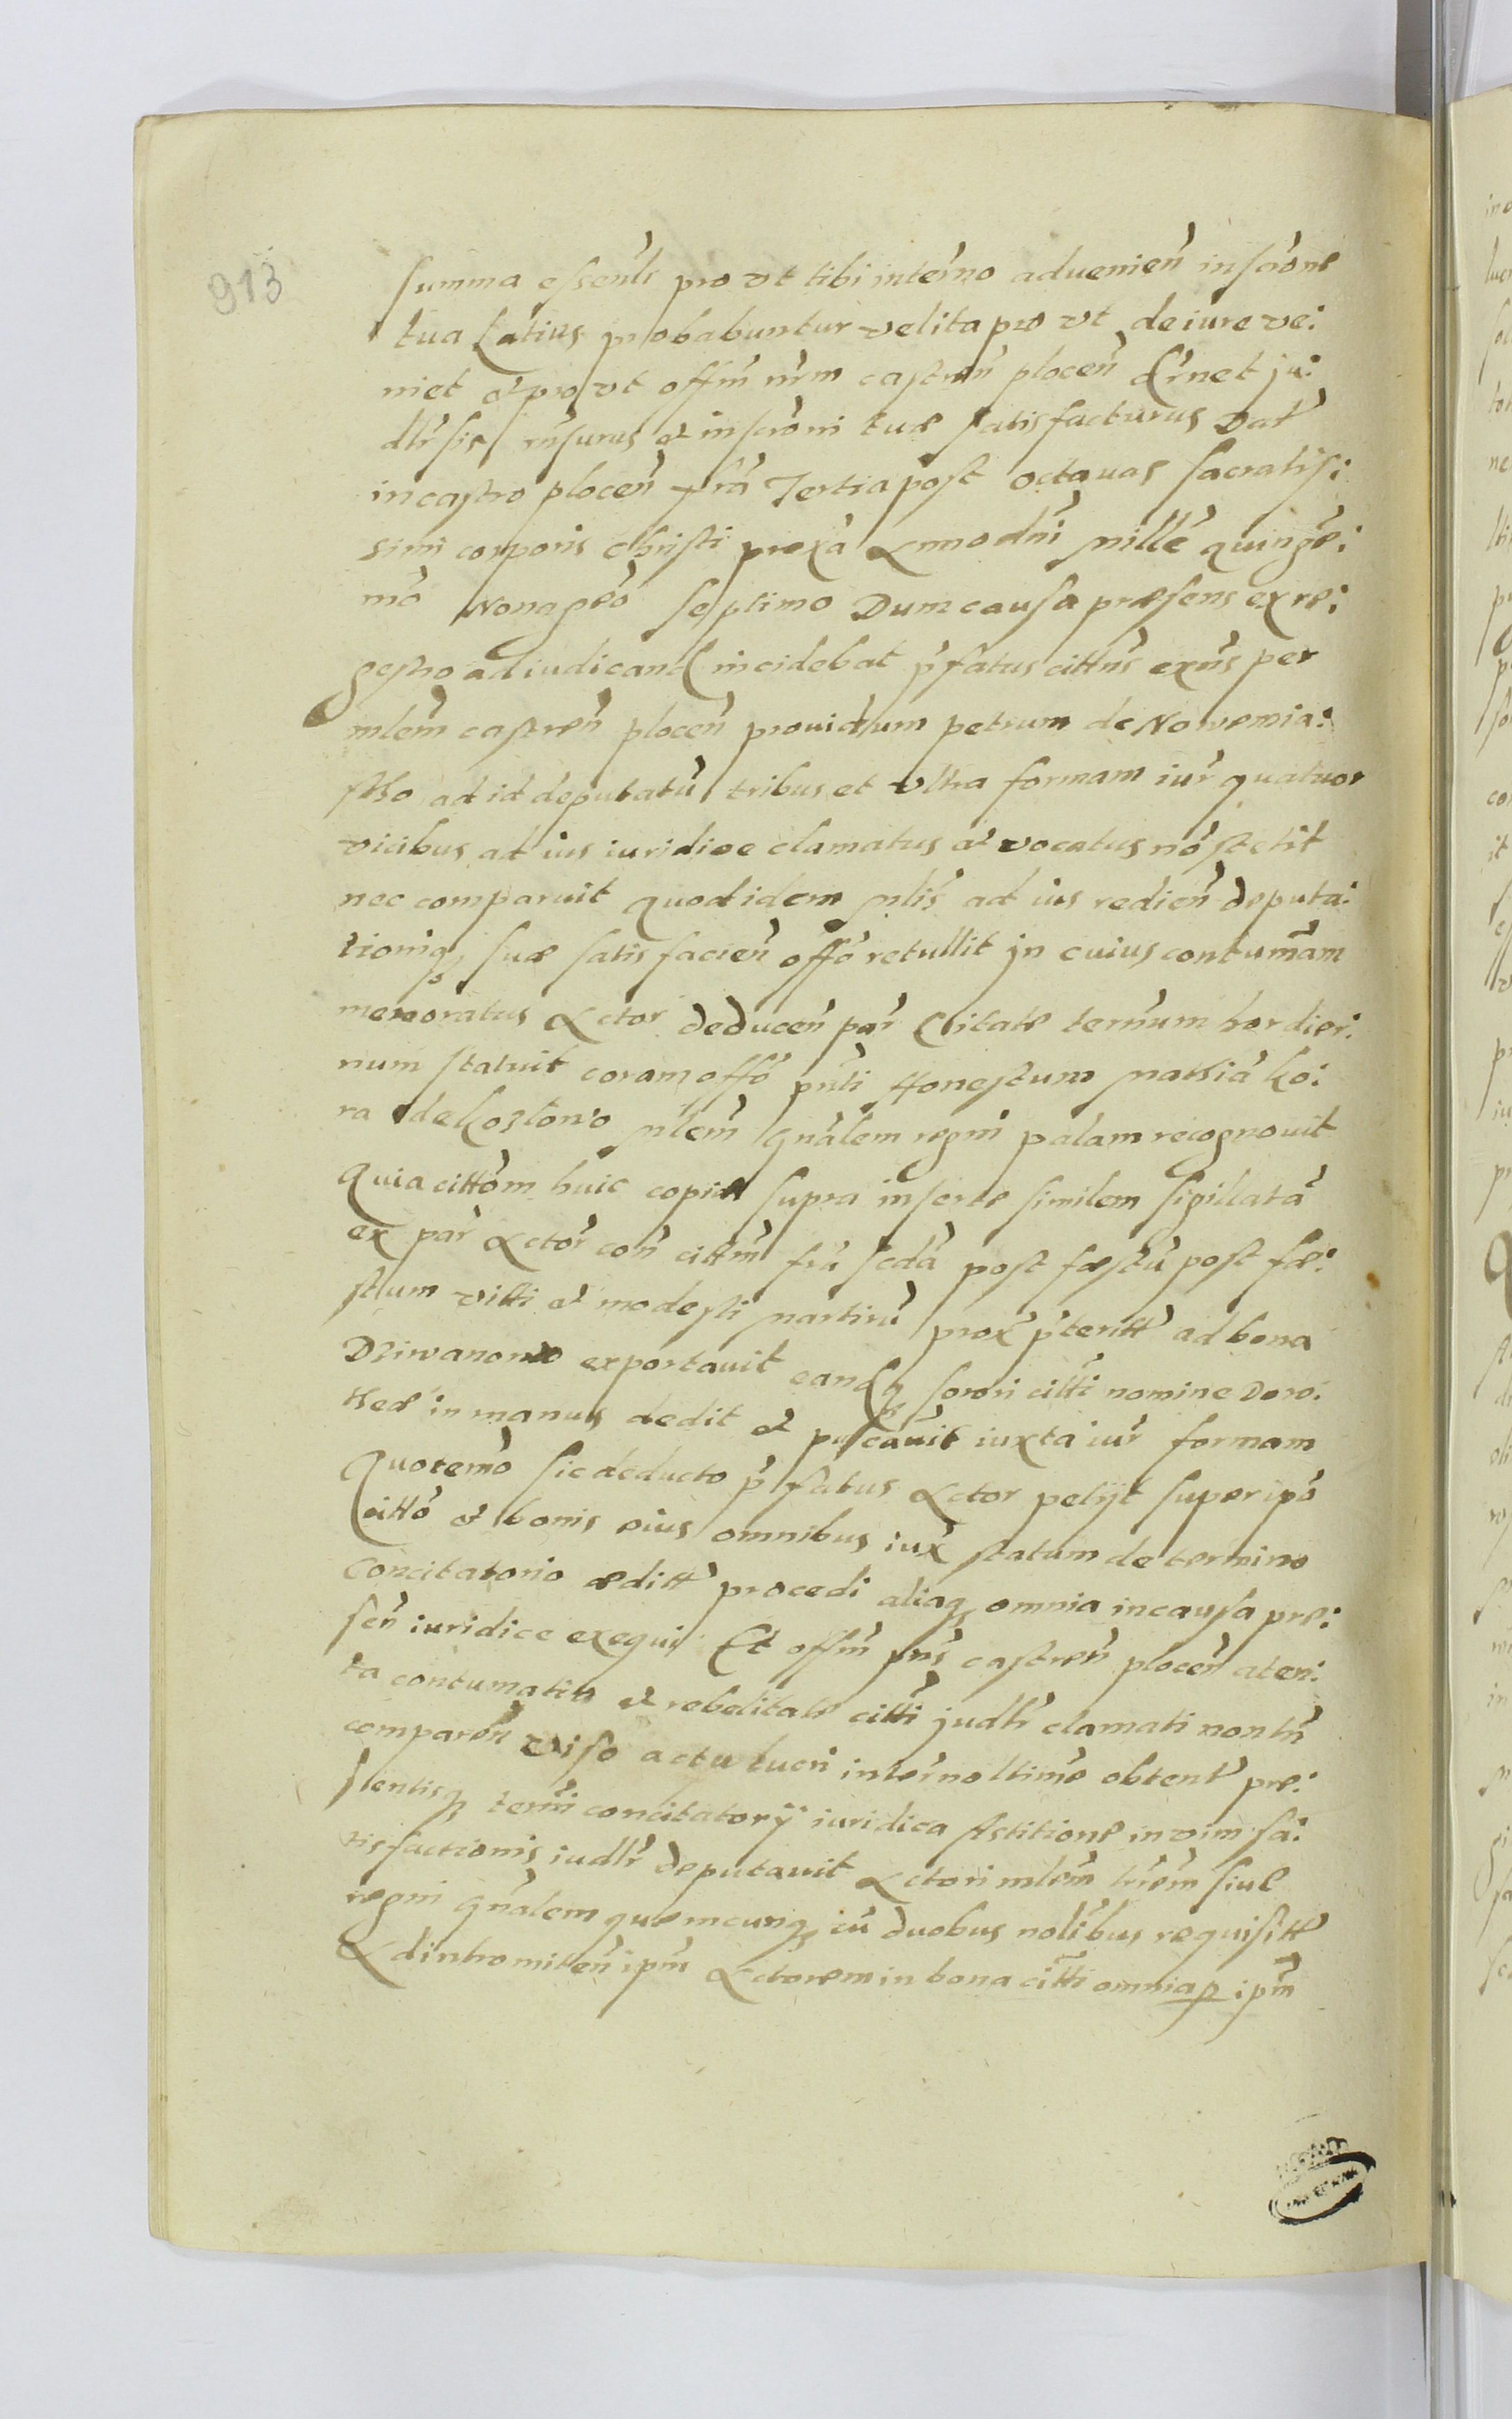 913
summa essenlr pro vt tibi interno aduenien inscrone
tua Latius probabuntur vel ita pro vt de iure ve:
niet et pro vt offm nrm castren plocen Crnet ju:
dlr sis rnsurus et inscroni tuæ satisfacturus Dat
in castro plocen fria Tertia post octauas sacratis:
simi corporis christi proxa Anno dni Mille quinge:
mo Nonageo septimo Dum causa præsens ex re:
gestro ad iudicand incidebat pfatus cittus exns per
mlem castren plocen prouidum petrum de Nowemia:
stho ad id deputatu tribus et vltra formam iur quatuor
vicibus ad ius iuridice clamatus et vocatus no stetit
nec comparuit quod idem Mlis ad ius redien deputa:
tioniq suæ satisfacien offo retullit jn cuius contumam
memoratus Actor deducen par Citate ternum hordier:
num statuit coram offo pnti Honestum Mathia ko:
ra de kozlowo Mlem gnalem regni palam recognouit
Quia cittom huic copiæ supra inserte similem sigillata
ex par Actor con cittm fria scda post fæstu post fæ:
stum vitti et modesti Martiru prox pteritt ad bona
Dziwanowo exportauit eandq sorori citti nomine Doro:
theæ in manus dedit et pucauit iuxta iur formam
Quo termo sic deducto pfatus Actor petijt super ipo
citto et bonis eius omnibus iux statum de termino
Concitatorio æditt procedi aliaq omnia in causa præ:
sen iuridice exequi Et offm pns castren plocen aten:
ta contumatia et rebelitate citti judlr clamati non tn
comparen viso actu lucri in terno ltimo obtent præ:
sentisq termi concitatory iuridica Astitione in vim sa:
tisfactionis iudlr deputauit Actori mlem trrem siue
regni gnalem quemcunq cu duobus nolibus requisitt
Ad intromiten ipm Actorem in bona citti omnia p ipm